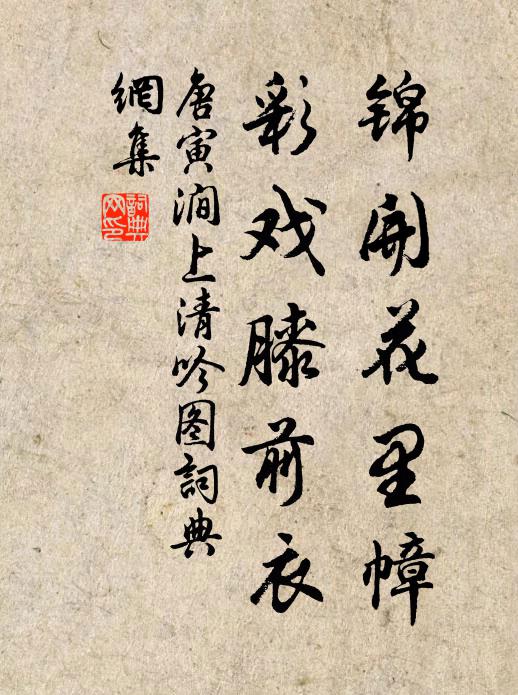 锦开花里幛
彩戏膝前衣
唐寅涧上清吟图词典
網集
詞典網印